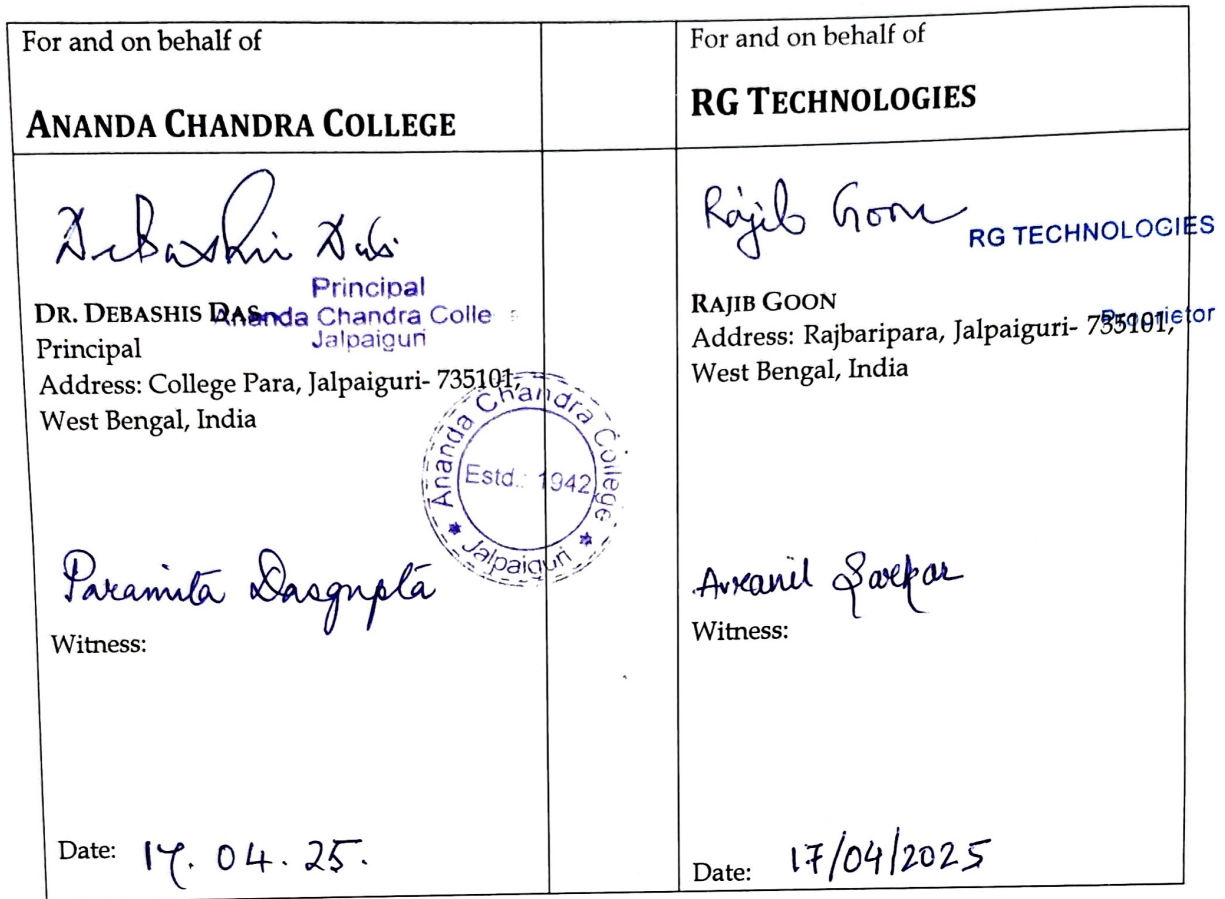 For and on behalf of
ANANDA CHANDRA COLLEGE
Debashis Das
Principal
Ananda Chandra Colle
Jalpaiguri
DR. DEBASHIS DAS
Principal
Address: College Para, Jalpaiguri- 735101,
West Bengal, India
Ananda Chandra College
Estd.: 1942
Jalpaiguri
Paramita Dasgupta
Witness:
Date: 17.04.25.
For and on behalf of
RG TECHNOLOGIES
Rajib Goon
RG TECHNOLOGIES
Proprietor
RAJIB GOON
Address: Rajbaripara, Jalpaiguri- 735101,
West Bengal, India
Sarkar
Witness:
Date: 17/04/2025